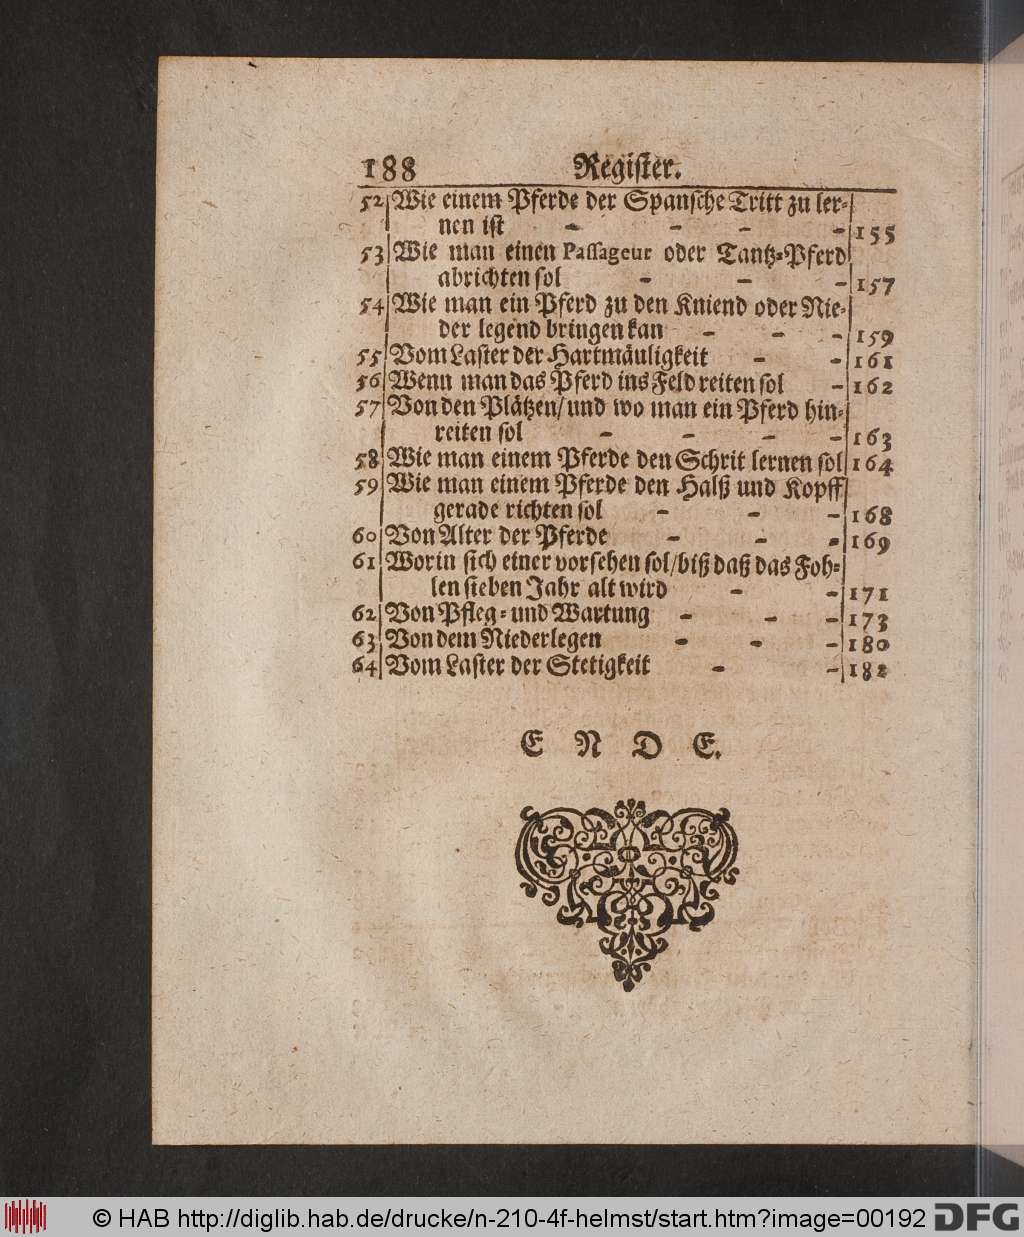 188 Register.
52 Wie einem Pferde der Spansche Tritt zu ler-
nen ist - - - - 155
53 Wie man einen Passageur oder Tantz-Pferd
abrichten sol - - - 157
54 Wie man ein Pferd zu den Kniend oder Nie-
der legend bringen kan - - - 159
55 Vom Laster der Hartmäuligkeit - - 161
56 Wenn man das Pferd ins Feld reiten sol - 162
57 Von den Plätzen/ und wo man ein Pferd hin-
reiten sol - - - - 163
58 Wie man einem Pferde den Schrit lernen sol 164
59 Wie man einem Pferde den Halß und Kopff
gerade richten sol - - - 168
60 Von Alter der Pferde - - - 169
61 Worin sich einer vorsehen sol/ biß daß das Foh-
len sieben Jahr alt wird - - 171
62 Von Pfleg- und Wartung - - - 173
63 Von dem Niederlegen - - - 180
64 Vom Laster der Stetigkeit - - 182
E N D E.
© HAB http://diglib.hab.de/drucke/n-210-4f-helmst/start.htm?image=00192 DFG